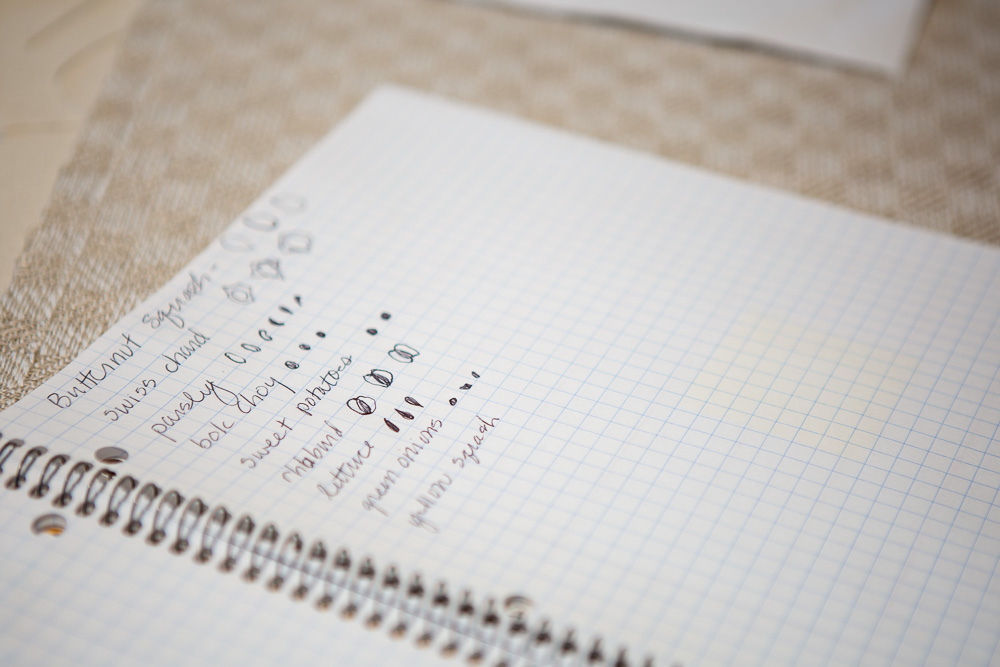 Butternut Squash.
swiss chard
parsley
bok choy
sweet potatoes
rhabarb
lettuce
green onions
yellow squash